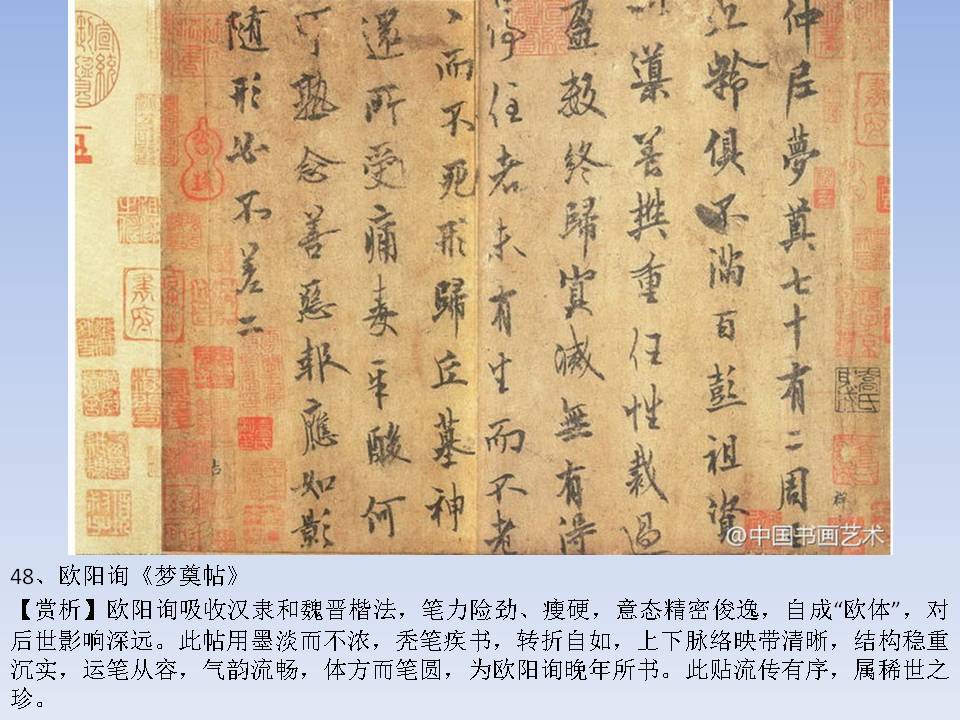 仲尼夢奠七十有二周
齡俱不滿百彭祖資
導養樊重任性裁過
盈數終歸冥滅無有得
停住者未有生而不老
而不死形歸丘墓神
還所受痛毒辛酸何
可熟念善惡報應如影
隨形必不差二
@中国书画艺术
48、欧阳询《梦奠帖》
【赏析】欧阳询吸收汉隶和魏晋楷法，笔力险劲、瘦硬，意态精密俊逸，自成“欧体”，对
后世影响深远。此帖用墨淡而不浓，秃笔疾书，转折自如，上下脉络映带清晰，结构稳重
沉实，运笔从容，气韵流畅，体方而笔圆，为欧阳询晚年所书。此贴流传有序，属稀世之
珍。